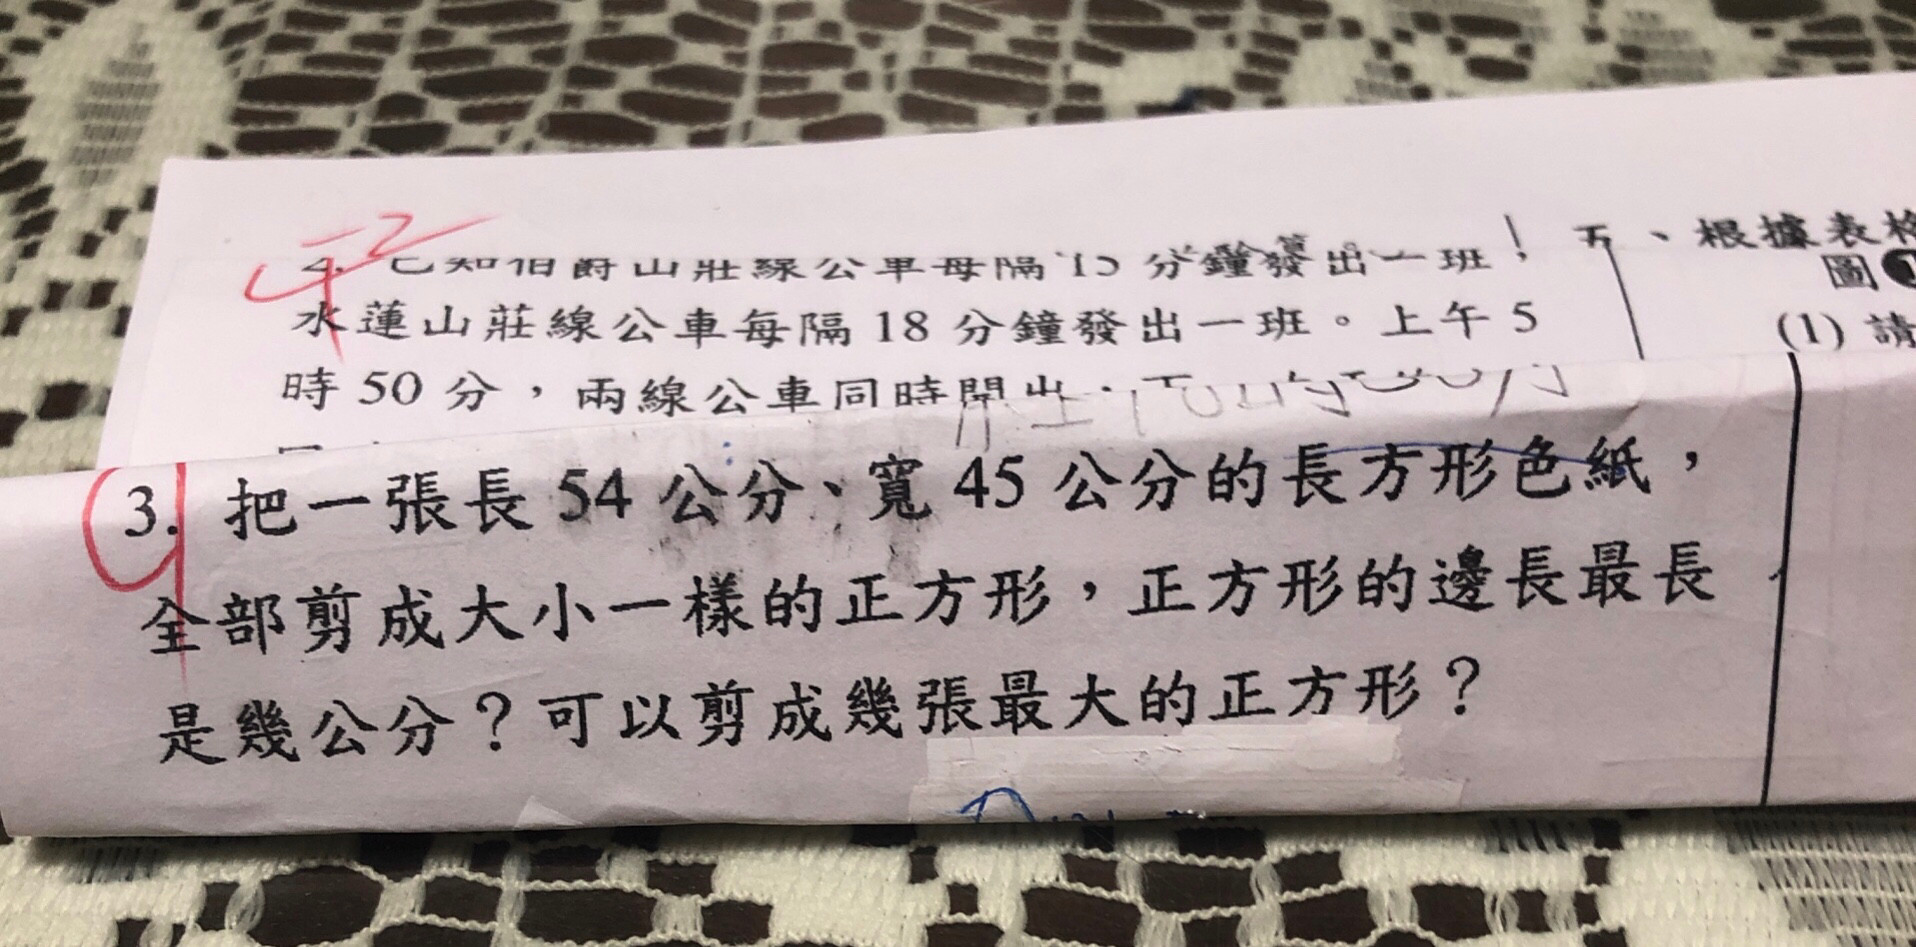 已知伯爵山莊線公車每隔15分鐘發出一班，
水蓮山莊線公車每隔18分鐘發出一班。上午5
時50分，兩線公車同時開出，
五、根據表格
圖❶
(1) 請
3. 把一張長54公分、寬45公分的長方形色紙，
全部剪成大小一樣的正方形，正方形的邊長最長
是幾公分？可以剪成幾張最大的正方形？